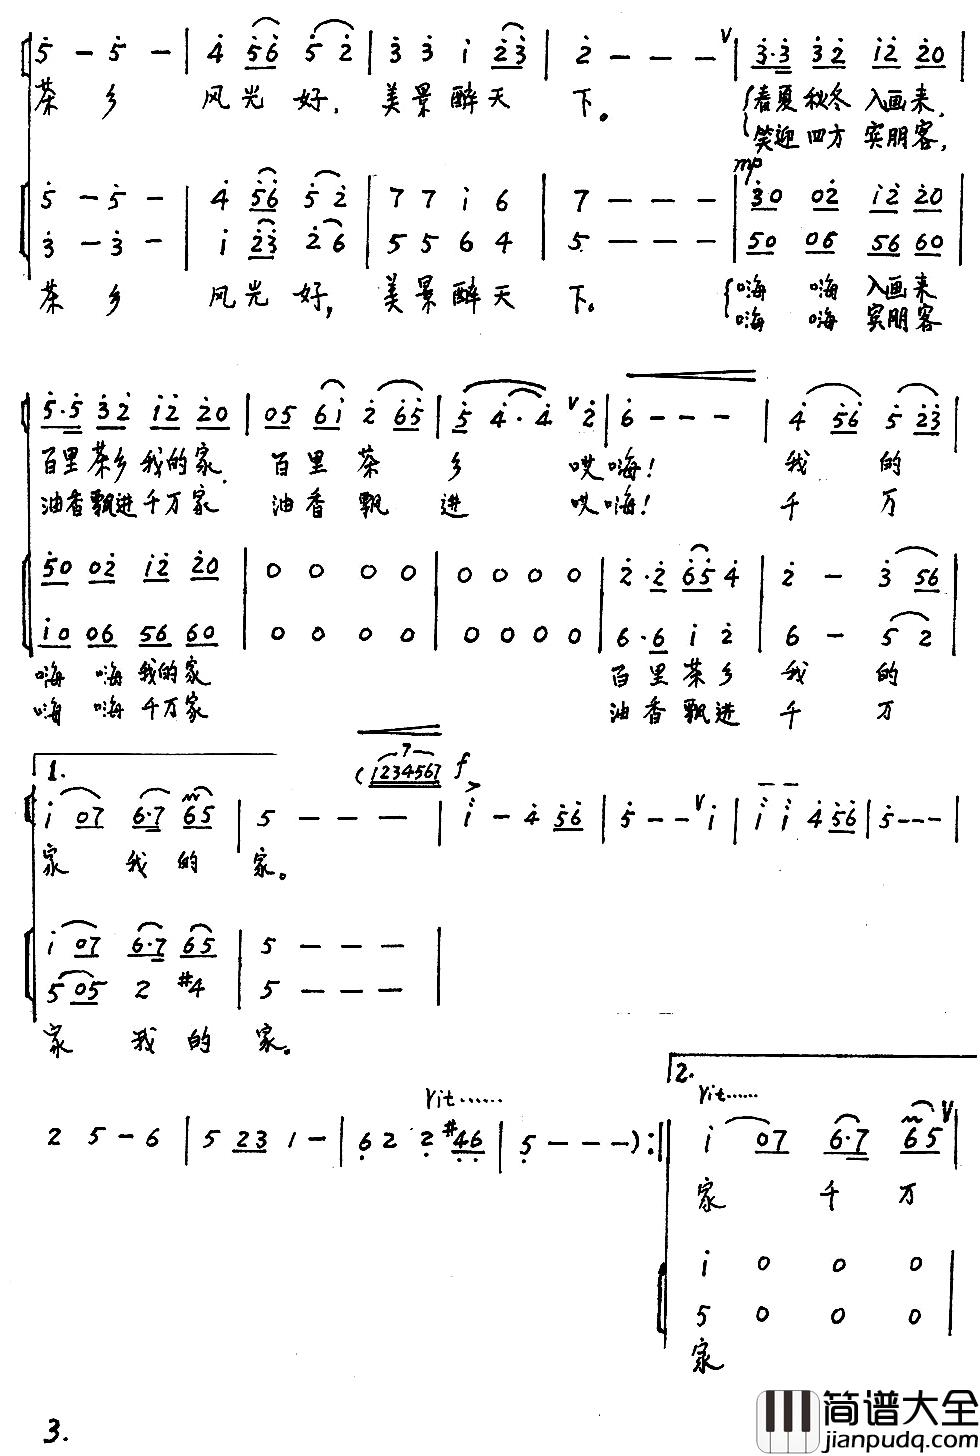 5̇ – 5̇ – | 4̇ 5̇6̇ 5̇ 2̇ | 3̇ 3̇ i 2̇3̇ | 2̇ – – – V | 3̇·3̇ 3̇2̇ i2̇ 2̇0 |
茶 乡 风光 好, 美景醉天 下。 春夏秋冬 入画来,
笑迎四方 宾朋客,
mp
5̇ – 5̇ – | 4̇ 5̇6̇ 5̇ 2̇ | 7 7 i 6 | 7 – – – | 3̇0 02̇ i2̇ 2̇0 |
3̇ – 3̇ – | i 2̇3̇ 2̇ 6 | 5 5 6 4 | 5 – – – | 50 06 56 60 |
茶 乡 风光 好, 美景醉天 下。 嗨 嗨 入画来
嗨 嗨 宾朋客
5̇·5̇ 3̇2̇ i2̇ 2̇0 | 05 6i 2̇ 6̇5̇ | 5̇ 4̇·4̇ V 2̇ | 6̇ – – – | 4̇ 5̇6̇ 5̇ 2̇3̇ |
百里茶乡 我的家, 百里 茶 乡 哎嗨! 我 的
油香飘进 千万家 油香 飘 进 哎嗨! 千 万
5̇0 02̇ i2̇ 2̇0 | 0 0 0 0 | 0 0 0 0 | 2̇·2̇ 6̇5̇ 4̇ | 2̇ – 3̇ 56 |
i0 06 56 60 | 0 0 0 0 | 0 0 0 0 | 6·6 i 2̇ | 6 – 5 2 |
嗨 嗨 我的家 百里茶乡 我 的
嗨 嗨 千万家 油香飘进 千 万
1.
7
(1234567 f
i 07 6·7 65 | 5 – – – | i – 4̇ 5̇6̇ | 5̇ – – V i | i i 4̇ 5̇6̇ | 5̇ – – – |
家 我 的 家。
i 07 6·7 65 | 5 – – – |
5 05 2 #4 | 5 – – – |
家 我 的 家。
2.
rit...... rit......
2 5 – 6 | 5 23 1 – | 6̣ 2 2̣ #4̣6̣ | 5̣ – – – ) :‖ i 07 6·7 65 V
家 千 万
i 0 0 0
5 0 0 0
家
3.
简谱大全
jianpudq.com